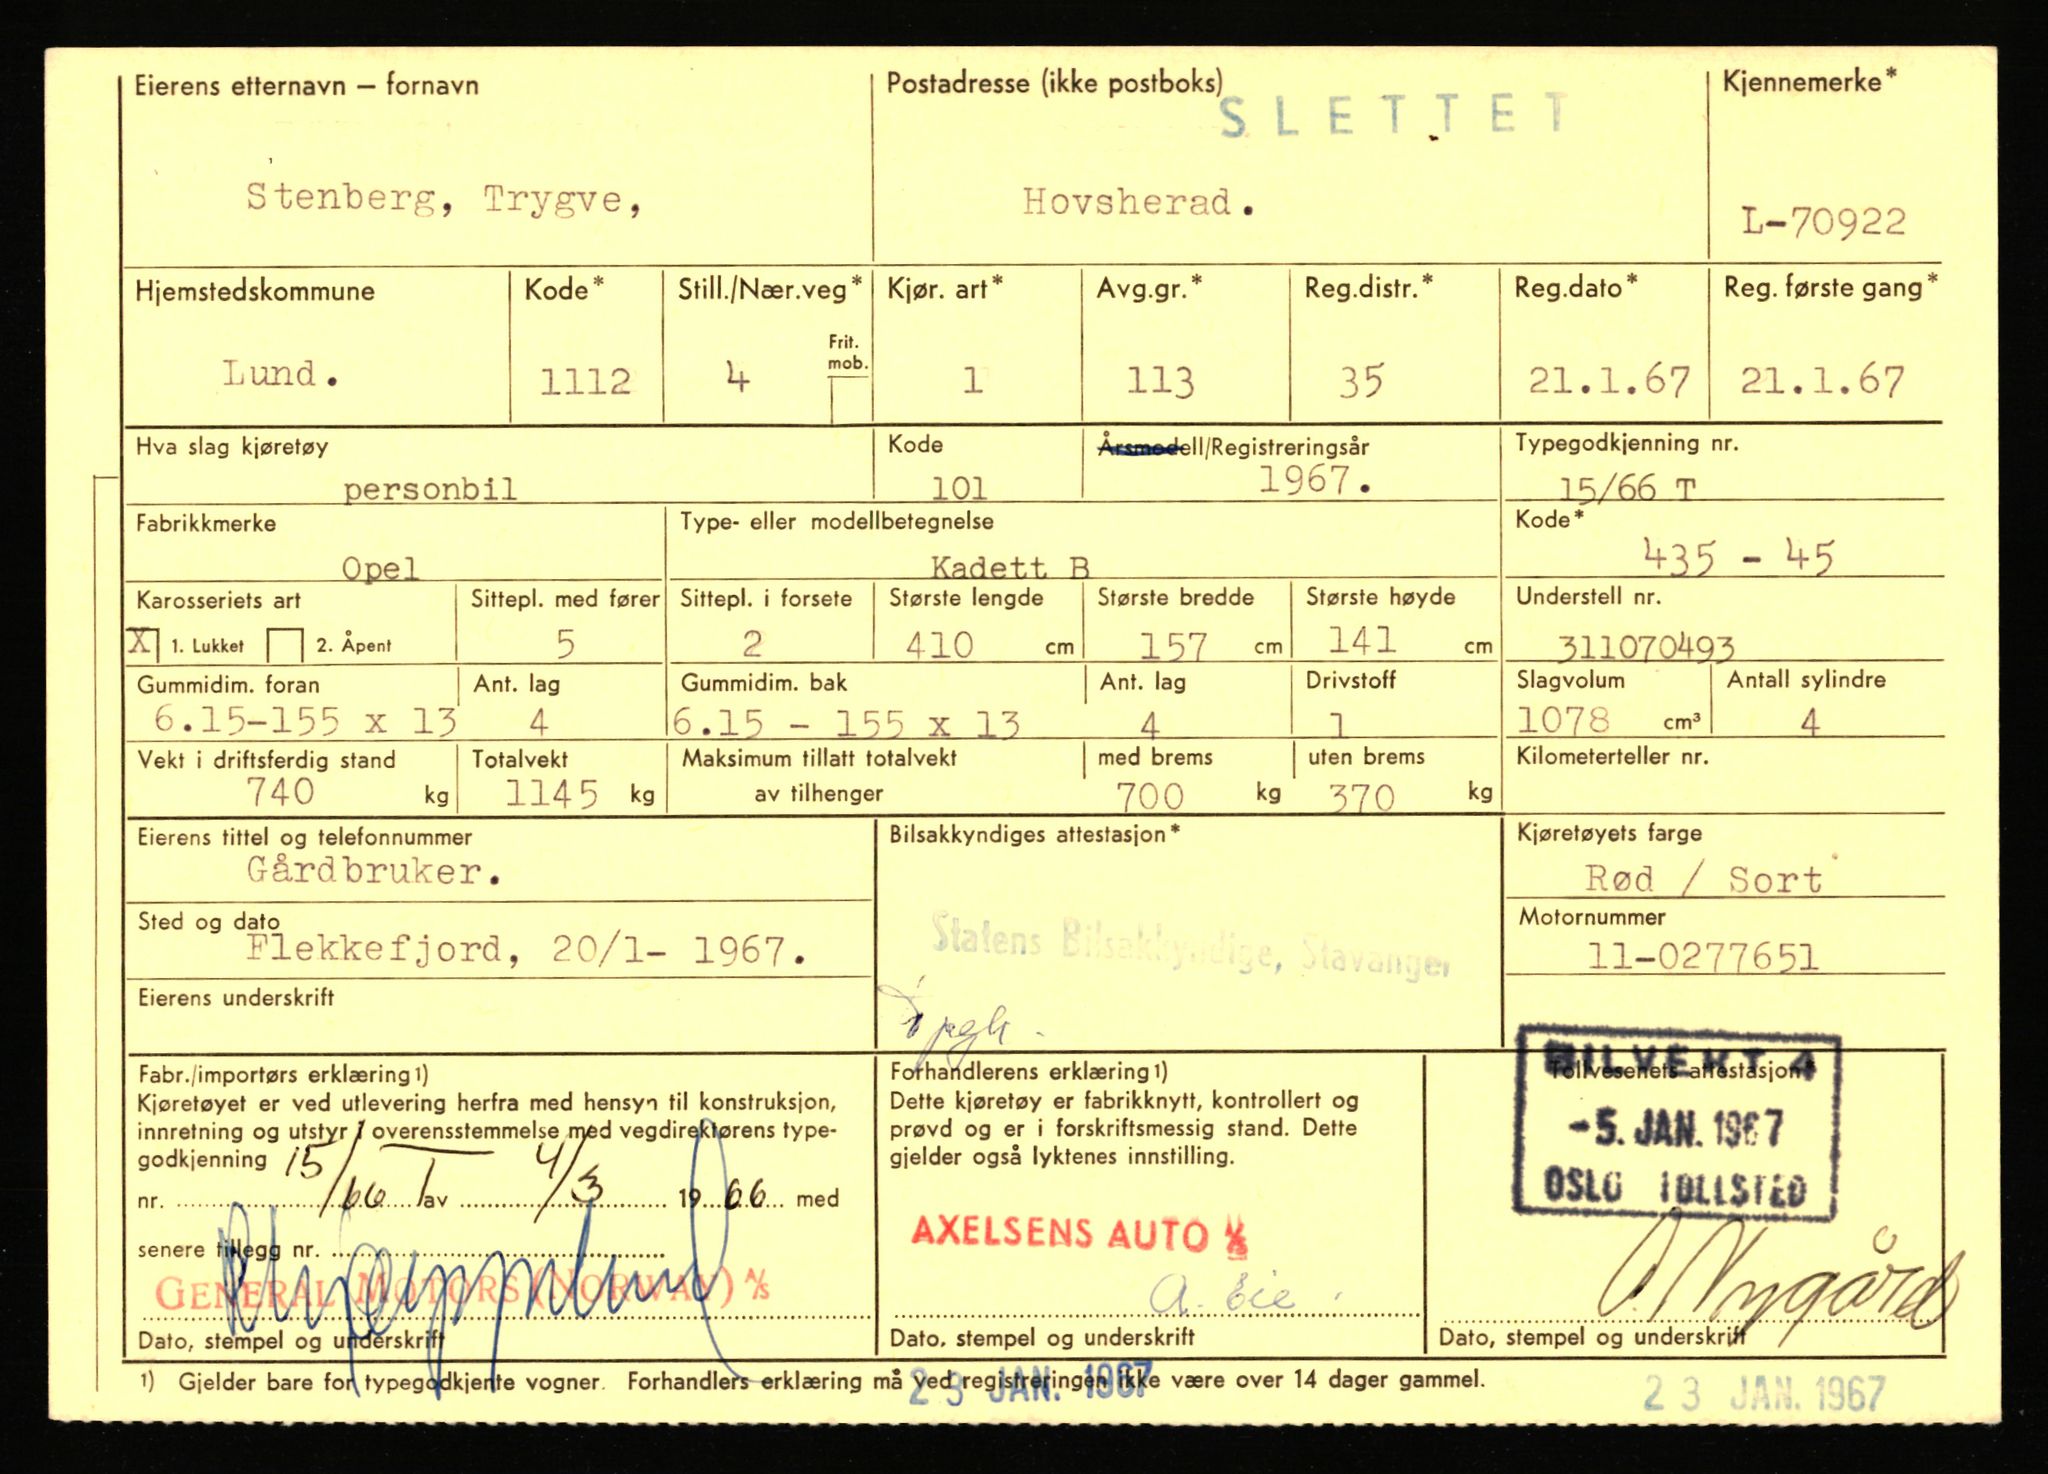 Eierens etternavn – fornavn
Postadresse (ikke postboks)
Kjennemerke*
SLETTET
Stenberg, Trygve,
Hovsherad.
L-70922
Hjemstedskommune
Kode*
Still./Nær.veg*
Kjør. art*
Avg.gr.*
Reg.distr.*
Reg.dato*
Reg. første gang*
Frit. mob.
Lund.
1112
4
1
113
35
21.1.67
21.1.67
Hva slag kjøretøy
Kode
Årsmodell/Registreringsår
Typegodkjenning nr.
personbil
101
1967.
15/66 T
Fabrikkmerke
Type- eller modellbetegnelse
Kode*
Opel
Kadett B
435 - 45
Karosseriets art
Sittepl. med fører
Sittepl. i forsete
Største lengde
Største bredde
Største høyde
Understell nr.
X 1. Lukket 2. Åpent
5
2
410 cm
157 cm
141 cm
311070493
Gummidim. foran
Ant. lag
Gummidim. bak
Ant. lag
Drivstoff
Slagvolum
Antall sylindre
6.15-155 x 13
4
6.15 - 155 x 13
4
1
1078 cm³
4
Vekt i driftsferdig stand
Totalvekt
Maksimum tillatt totalvekt
med brems
uten brems
Kilometerteller nr.
740 kg
1145 kg
av tilhenger
700 kg
370 kg
Eierens tittel og telefonnummer
Bilsakkyndiges attestasjon*
Kjøretøyets farge
Gårdbruker.
Rød / Sort
Sted og dato
Motornummer
Flekkefjord, 20/1- 1967.
Statens Bilsakkyndige, Stavanger
11-0277651
Eierens underskrift
Fabr./importørs erklæring1)
Kjøretøyet er ved utlevering herfra med hensyn til konstruksjon,
innretning og utstyr i overensstemmelse med vegdirektørens type-
godkjenning
nr. 15/66 T av 4/3 1966 med
senere tillegg nr.
GENERAL MOTORS (NORWAY) A/S
Dato, stempel og underskrift
Forhandlerens erklæring1)
Dette kjøretøy er fabrikknytt, kontrollert og
prøvd og er i forskriftsmessig stand. Dette
gjelder også lyktenes innstilling.
AXELSENS AUTO A/S
A. Eie
Dato, stempel og underskrift
Tollvesenets attestasjon*
BILVEKT 4
-5. JAN. 1967
OSLO TOLLSTED
O. Nygård
Dato, stempel og underskrift
1) Gjelder bare for typegodkjente vogner. Forhandlers erklæring må ved registreringen ikke være over 14 dager gammel.
23 JAN. 1967
23 JAN. 1967